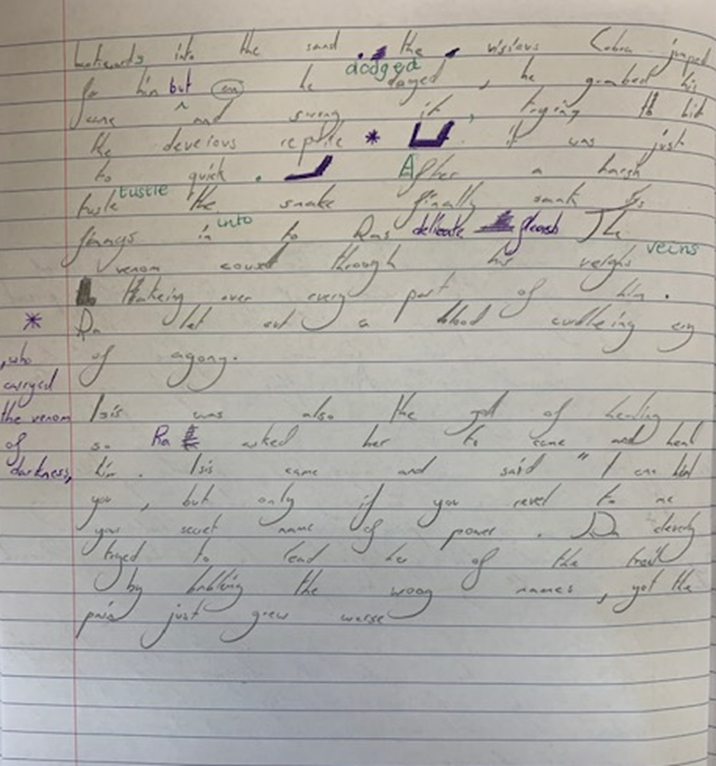 backwards into the sand . the visious Cobra jumped
for him but on he doged dodged , he grabbed his
cane and swong it , trying to hit
the deveious reptile * it was just
to quick . After a harsh
tusle tustle the snake finally sank its
fangs in into to Ras delicate fleash The
venom coused through his veighs veins
thakeing over every part of him .
* Ra let out a blood curdleing cry
of agony.
, who
carryed
the venom
of
darkness,
Isis was also the god of healing
so Ra asked her to come and heal
him . Isis came and said " I can heal
you , but only if you revel to me
you secret name of power . Ra cleverly
tryed to lead her of the trail
by babbleing the wrong names , yet the
pain just grew worse